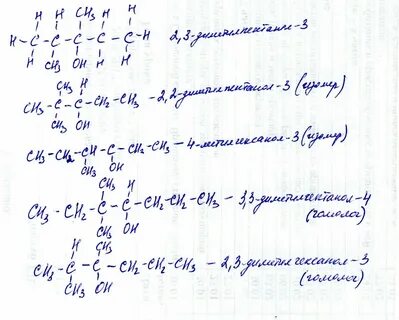 H H CH₃ H H
H-C-C-C-C-C-H 2,3-диметилпентанол-3
H CH₃ OH H H
CH₃ H
CH₃-C-C-CH₂-CH₃ - 2,2-диметилпентанол-3 (изомер)
CH₃ OH
H
CH₃-CH₂-CH-C-CH₂-CH₃ - 4-метилгексанол-3 (изомер)
CH₃ OH
CH₃ H
CH₃-CH₂-C-C-CH₂-CH₂-CH₃ - 3,3-диметилгептанол-4
CH₃ OH (гомолог)
H CH₃
CH₃-C-C-CH₂-CH₂-CH₃ - 2,3-диметилгексанол-3
CH₃ OH (гомолог)